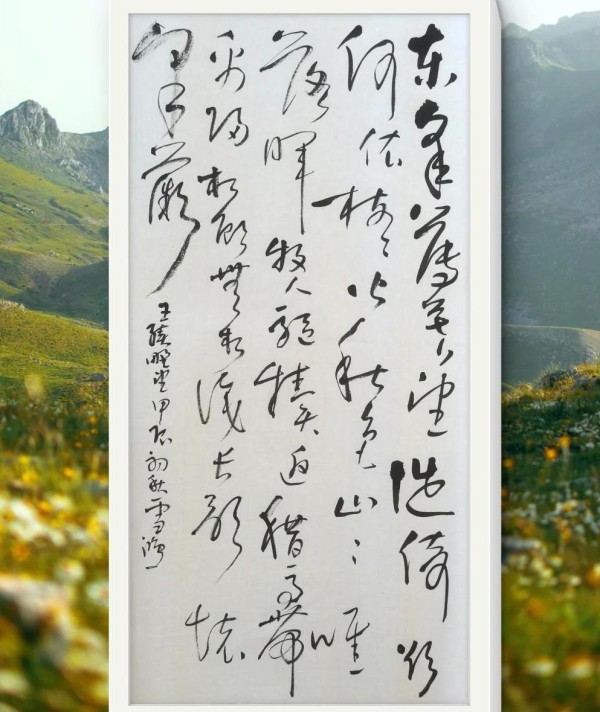 东皋薄暮望徙倚欲
何依树々皆秋色山々唯
落晖牧人驱犊返猎马带
禽归相顾無相识长歌怀
采薇
王绩野望甲辰初秋雪鸿